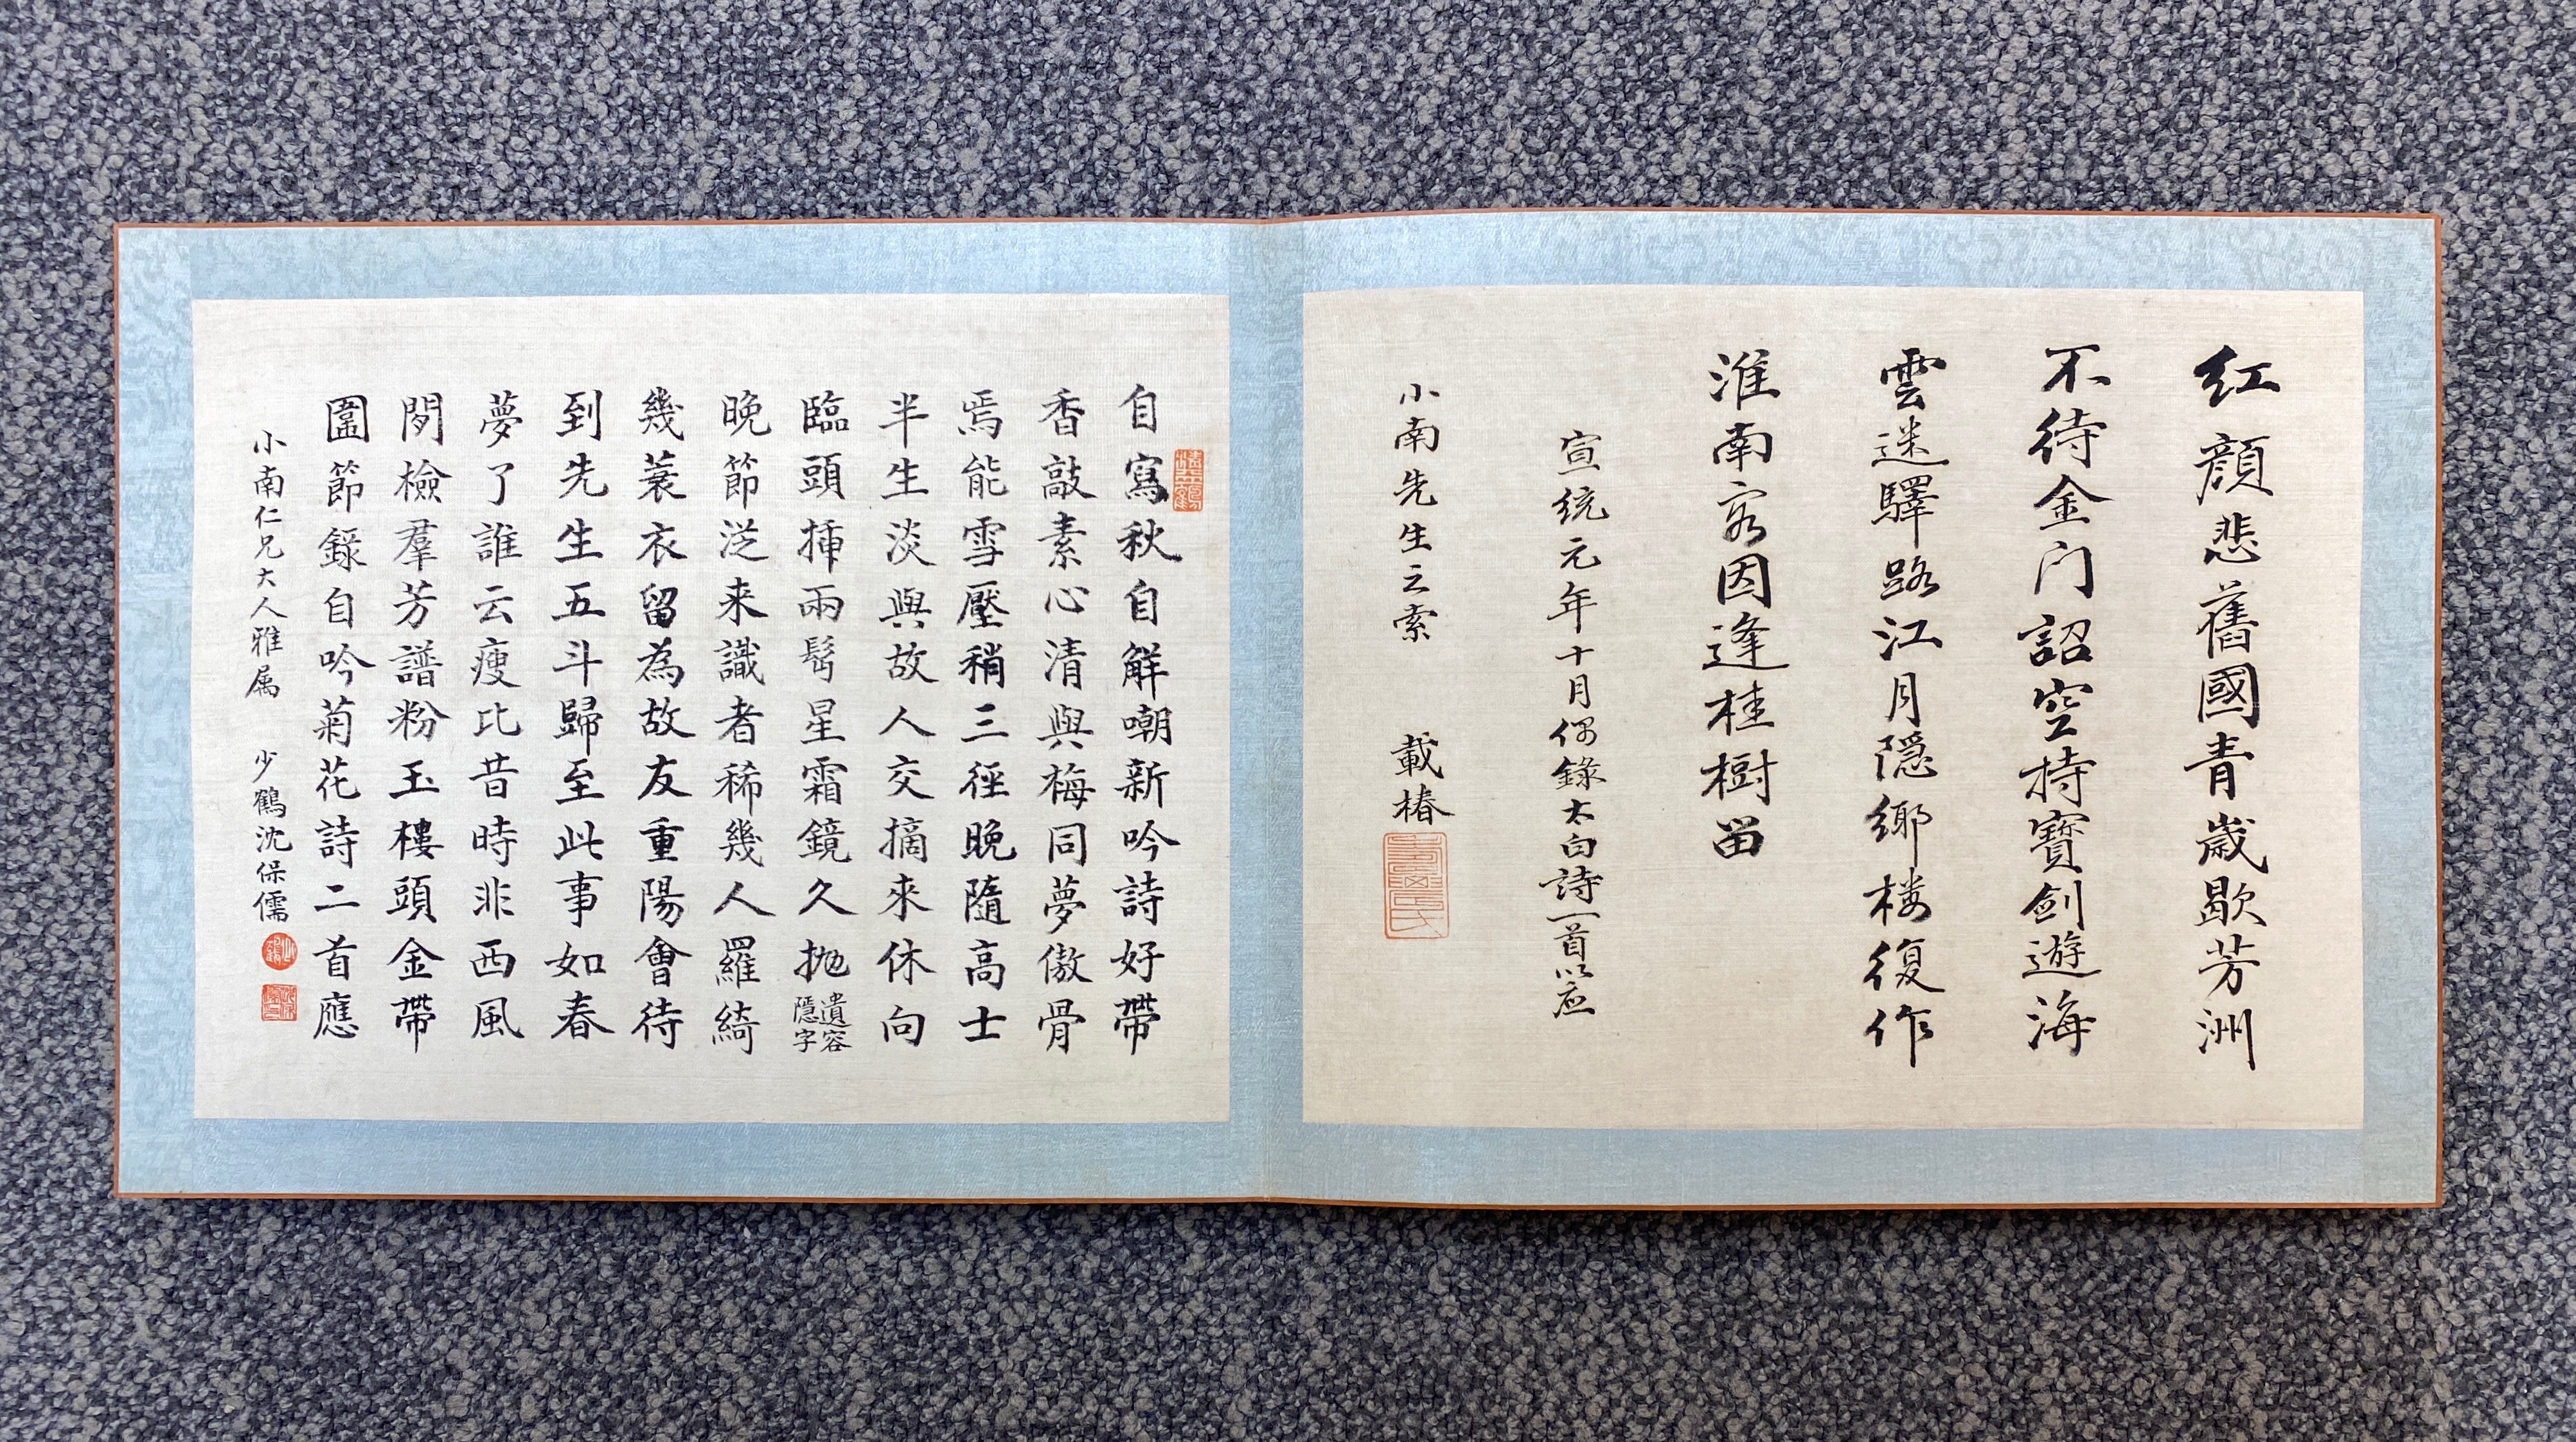 红顔悲舊國青歲歇芳洲
不待金门詔空持寶劍遊海
雲迷驛路江月隱鄉楼復作
淮南客因逢桂樹留
宣統元年十月偶錄太白詩一首以应
小南先生之索　載椿
自寫秋自解嘲新吟詩好帶
香敲素心清與梅同夢傲骨
焉能雪壓稍三徑晚隨高士
半生淡與故人交摘來休向
臨頭揷兩髩星霜鏡久拋遺容隱字
晚節泛来識者稀幾人羅綺
幾蓑衣留為故友重陽會待
到先生五斗歸至此事如春
夢了誰云瘦比昔時非西風
閒檢羣芳譜粉玉樓頭金帶
圍節錄自吟菊花詩二首應
小南仁兄大人雅属　少鶴沈保儒